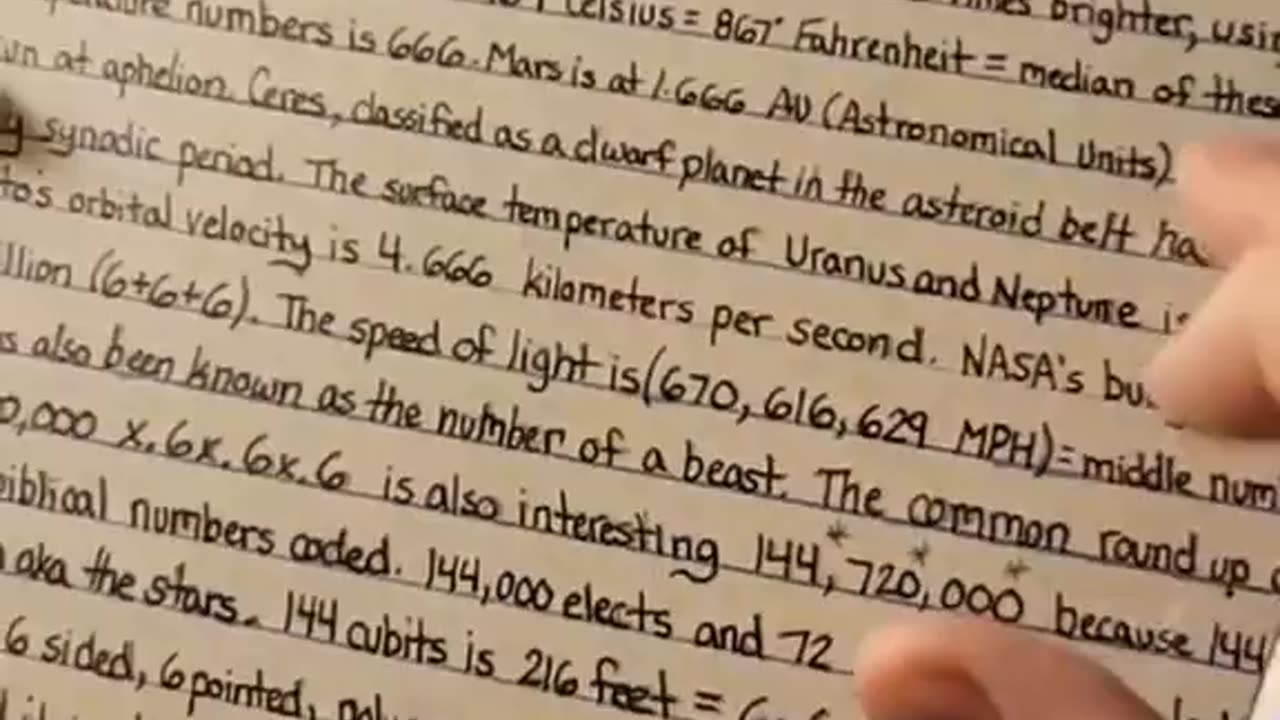 brighter, usin
Celsius = 867° Fahrenheit = median of thes
numbers is 666. Mars is at 1.666 AU (Astronomical Units)
wn at aphelion. Ceres, classified as a dwarf planet in the asteroid belt ha
y synodic period. The surface temperature of Uranus and Neptune is
to's orbital velocity is 4.666 kilometers per second. NASA's bu
llion (6+6+6). The speed of light is (670,616,629 MPH)= middle num
s also been known as the number of a beast. The common round up
0,000 x.6x.6x.6 is also interesting 144,*720,*000* because 144
biblical numbers coded. 144,000 elects and 72
aka the stars. 144 cubits is 216 feet =
6 sided, 6 pointed,